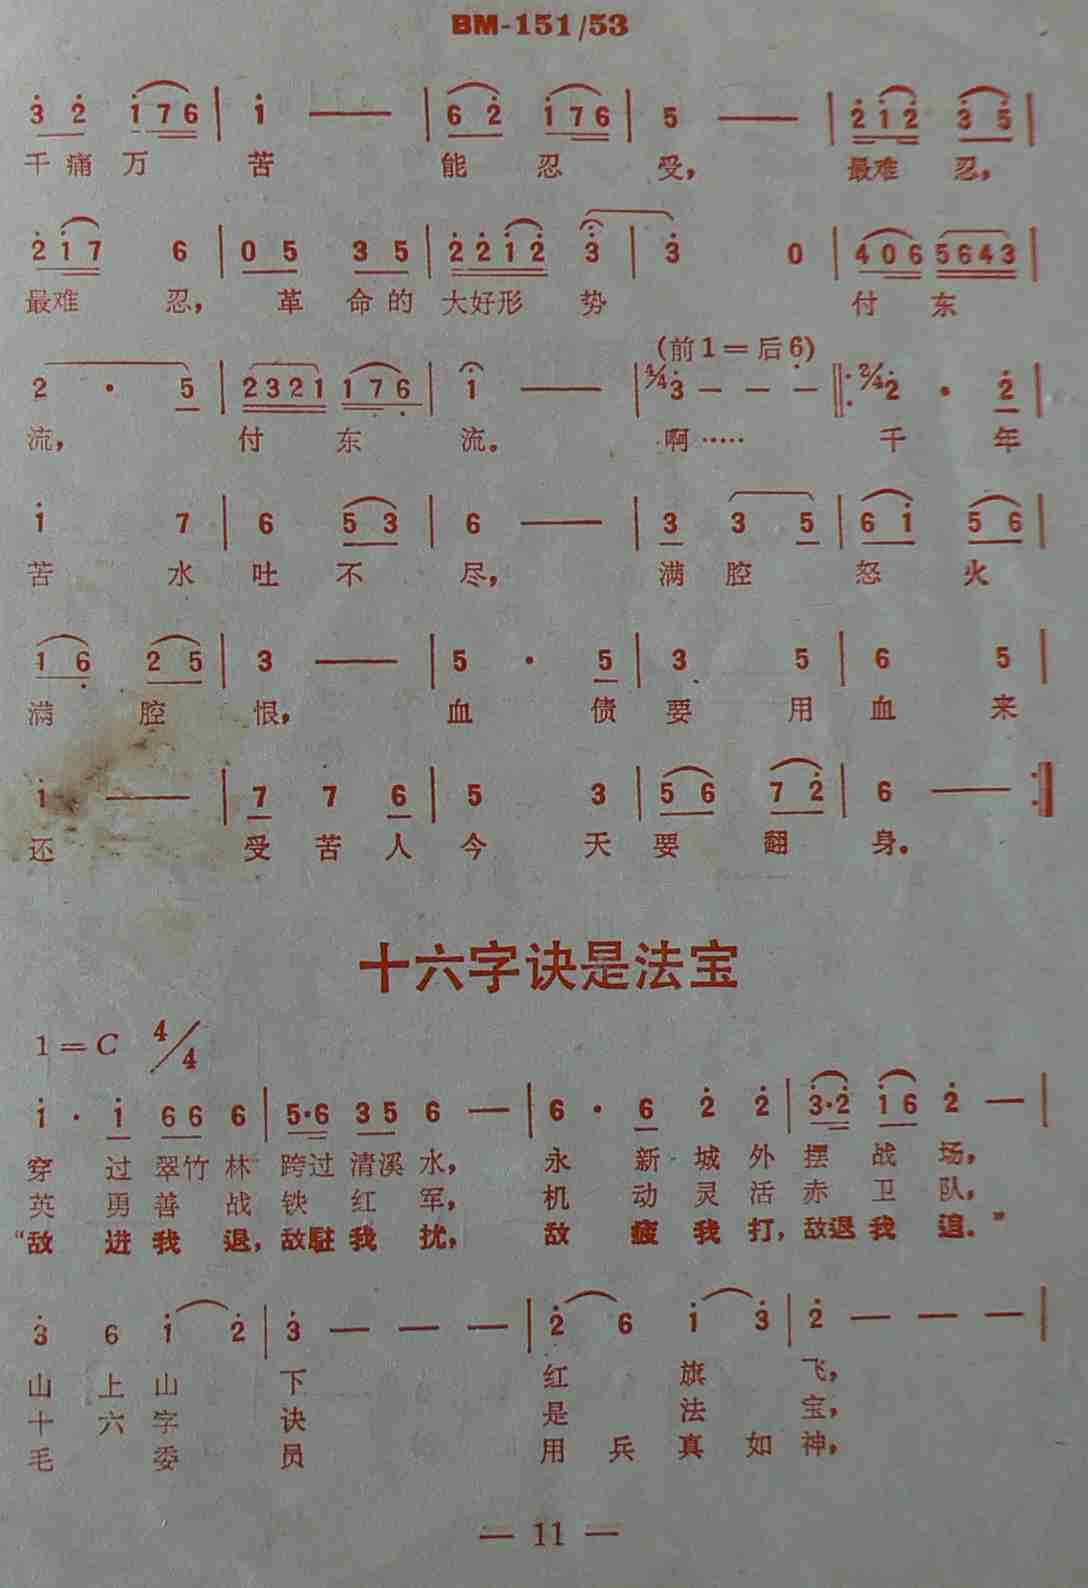 BM-151/53
3 2 1 7 6 | 1 — | 6 2 1 7 6 | 5 — | 2 1 2 3 5 |
千痛万 苦 能 忍 受， 最难 忍，
2 1 7 6 | 0 5 3 5 | 2 2 1 2 3 | 3 0 | 4 0 6 5 6 4 3 |
最难 忍， 革 命的 大好形 势 付 东
(前1=后6)
2 · 5 | 2 3 2 1 1 7 6 | 1 — | 4/4 3 — — — |: 2/4 2 · 2 |
流， 付 东 流。 啊…… 千 年
1 7 | 6 5 3 | 6 — | 3 3 5 | 6 1 5 6 |
苦 水 吐 不 尽， 满 腔 怒 火
1 6 2 5 | 3 — | 5 · 5 | 3 5 | 6 5 |
满 腔 恨， 血 债 要 用 血 来
1 — | 7 7 6 | 5 3 | 5 6 7 2 | 6 — :|
还 受 苦 人 今 天 要 翻 身。
十六字诀是法宝
1=C 4/4
1 · 1 6 6 6 | 5·6 3 5 6 — | 6 · 6 2 2 | 3·2 1 6 2 — |
穿 过 翠竹 林 跨过 清溪 水， 永 新 城 外 摆 战 场，
英 勇 善 战 铁 红 军， 机 动 灵 活 赤 卫 队，
“敌 进 我 退，敌驻 我 扰， 敌 疲 我 打，敌退 我 追。”
3 6 1 2 | 3 — — — | 2 6 1 3 | 2 — — — |
山 上 山 下 红 旗 飞，
十 六 字 诀 是 法 宝，
毛 委 员 用 兵 真 如 神，
— 11 —